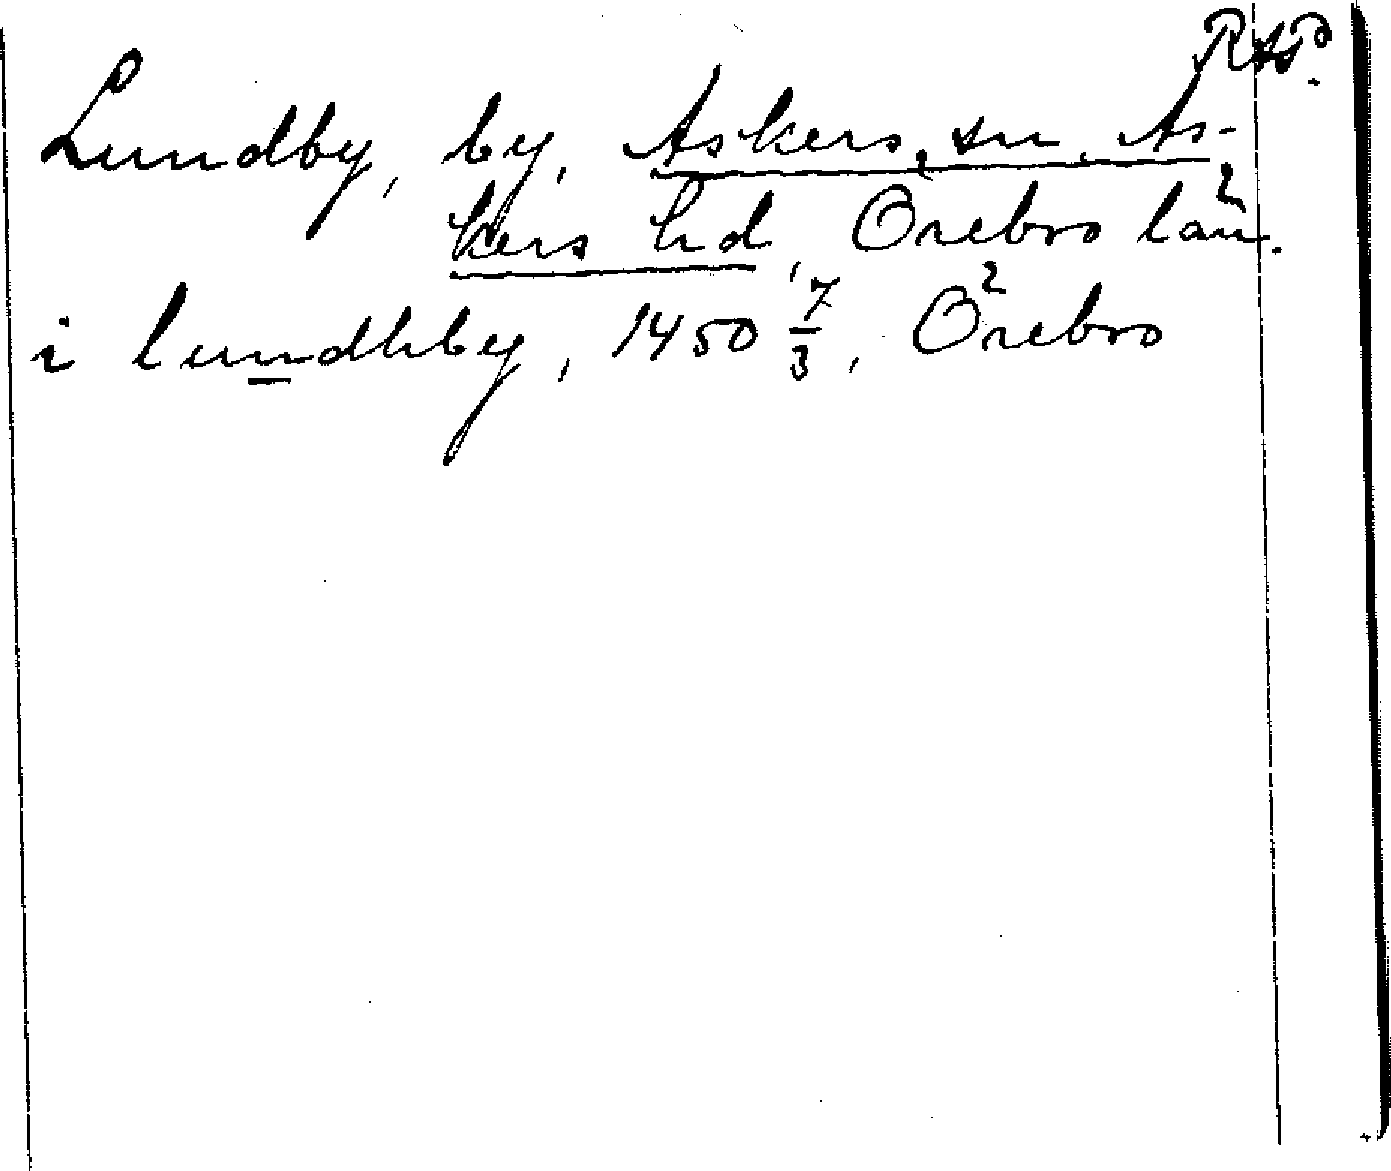 RAP.
Lundby, by, Askers sn, As-
kers hd, Örebro län.
i lundhby, 1450 7/3, Örebro